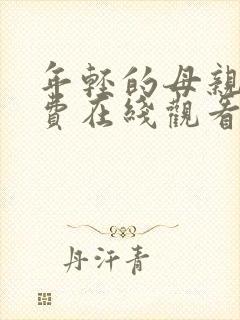 年轻的母親
費在綫觀看
丹汗青